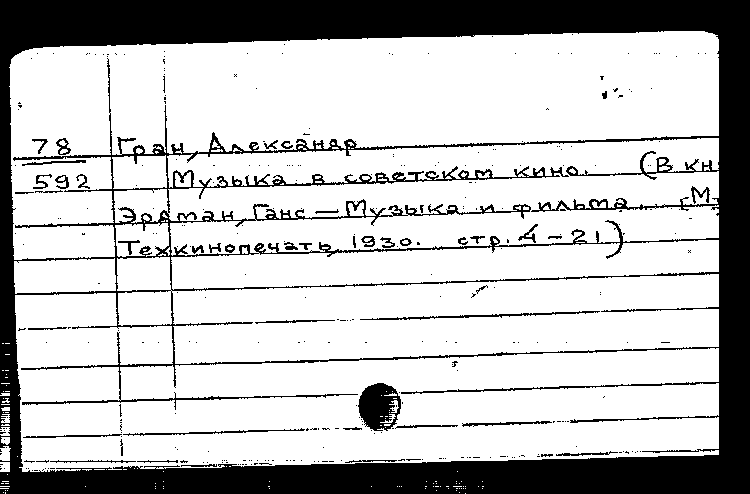 78 Гран, Александр
592 Музыка в советском кино. (В кн
Эрдман, Ганс — Музыка и фильма. [М.,
Техкинопечать, 1930. стр. 4 – 21)